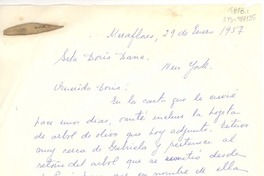 Miraflores, 29 de Enero 1957
Srta Doris Dana
New York.
Querida Doris:
En la carta que le envié
hace unos días, omití incluir la hojita
de árbol de olivo que hoy adjunto. Estuvo
muy cerca de Gabriela y pertenece al
retoño del árbol que se
en nombre de ella